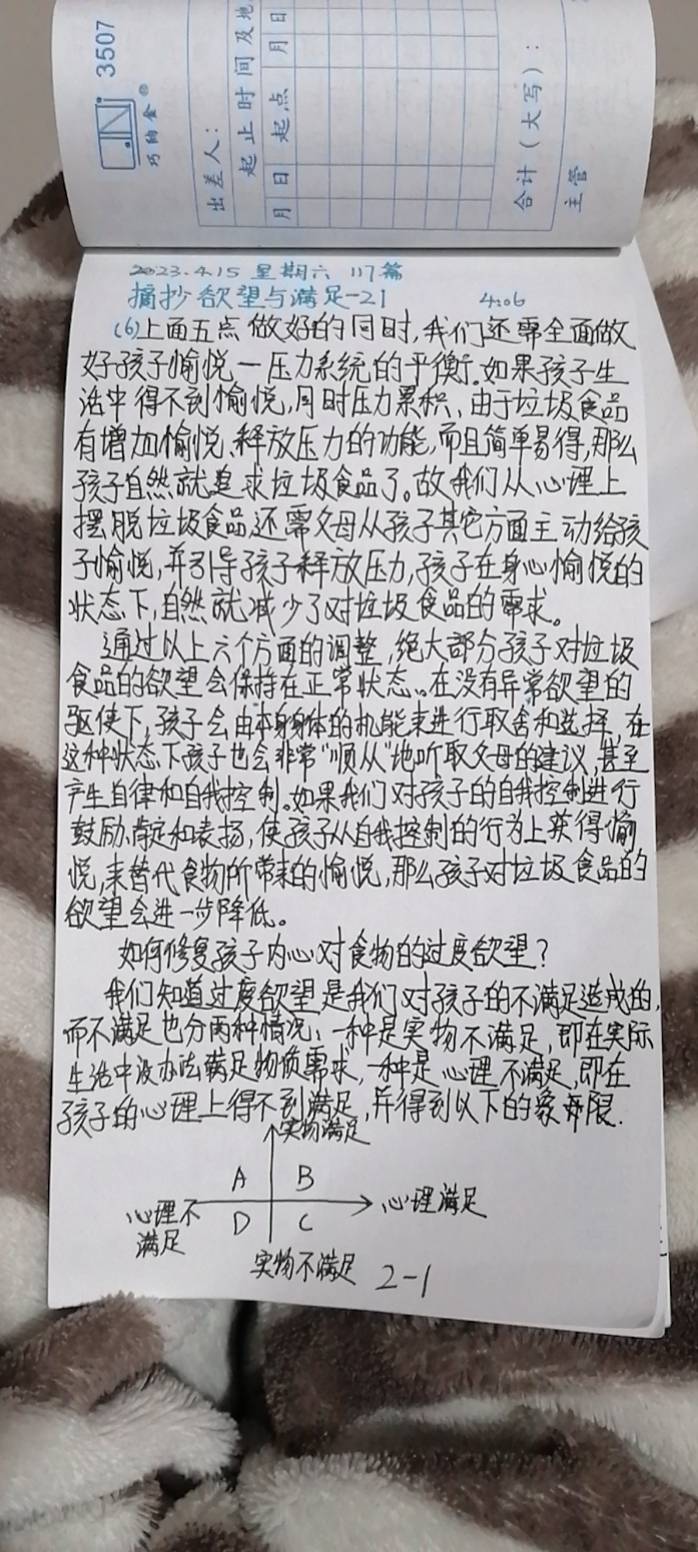 3507
巧纳舍®
出差人：
起止时间及地
月 日 起点 月 日
合计（大写）：
主管
2023.4.15 星期六 117篇
摘抄欲望与满足-21 4:06
(6)上面五点做好的同时,我们还需全面做
好孩子愉悦一压力系统的平衡。如果孩子生
活中得不到愉悦,同时压力累积、由于垃圾食品
有增加愉悦、释放压力的功能,而且简单易得,那么
孩子自然就追求垃圾食品了。故我们从心理上
摆脱垃圾食品,还需父母从孩子其它方面主动给孩
子愉悦,并引导孩子释放压力,孩子在身心愉悦的
状态下,自然就减少了对垃圾食品的需求。
通过以上六个方面的调整,绝大部分孩子对垃圾
食品的欲望会保持在正常状态。在没有异常欲望的
驱使下,孩子会由本身身体的机能来进行取舍和选择,在
这种状态下孩子也会非常“顺从”地听取父母的建议,甚至
产生自律和自我控制。如果我们对孩子的自我控制进行
鼓励、肯定和表扬,使孩子从自我控制的行为上获得愉
悦,来替代食物所带来的愉悦,那么孩子对垃圾食品的
欲望会进一步降低。
如何修复孩子内心对食物的过度欲望?
我们知道过度欲望是我们对孩子的不满足造成的,
而不满足也分两种情况、一种是实物不满足,即在实际
生活中没办法满足物质需求,一种是心理不满足,即在
孩子的心理上得不到满足,并得到以下的象限.
实物满足
A B
心理不满足 心理满足
D C
实物不满足 2-1